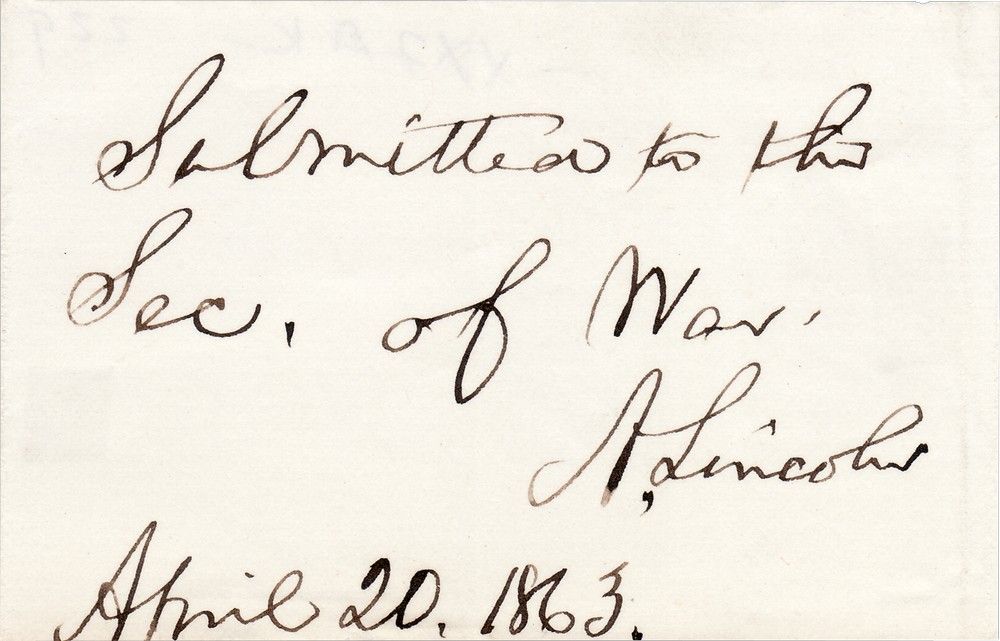 Submitted to the
Sec. of War.
A. Lincoln
April 20. 1863.